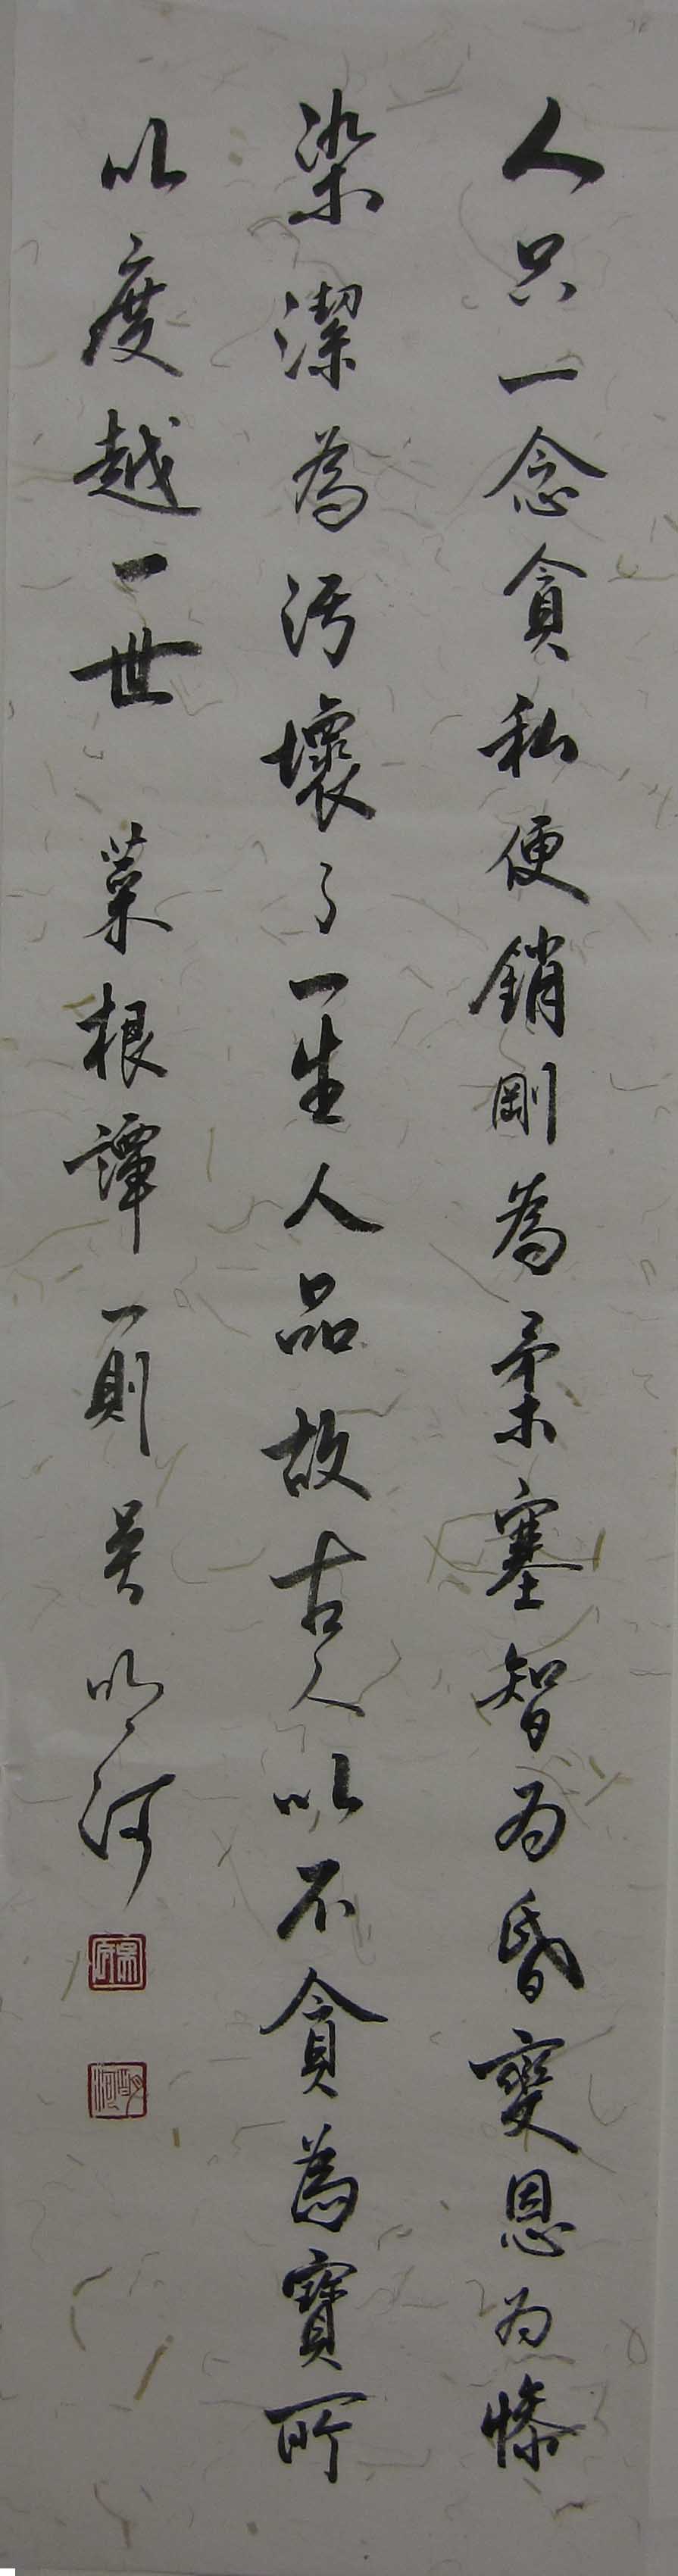 人只一念貪私便銷剛為柔塞智为昏變恩为慘
染潔為汚壞了一生人品故古人以不貪為寶所
以度越一世 菜根譚一則 吴以河